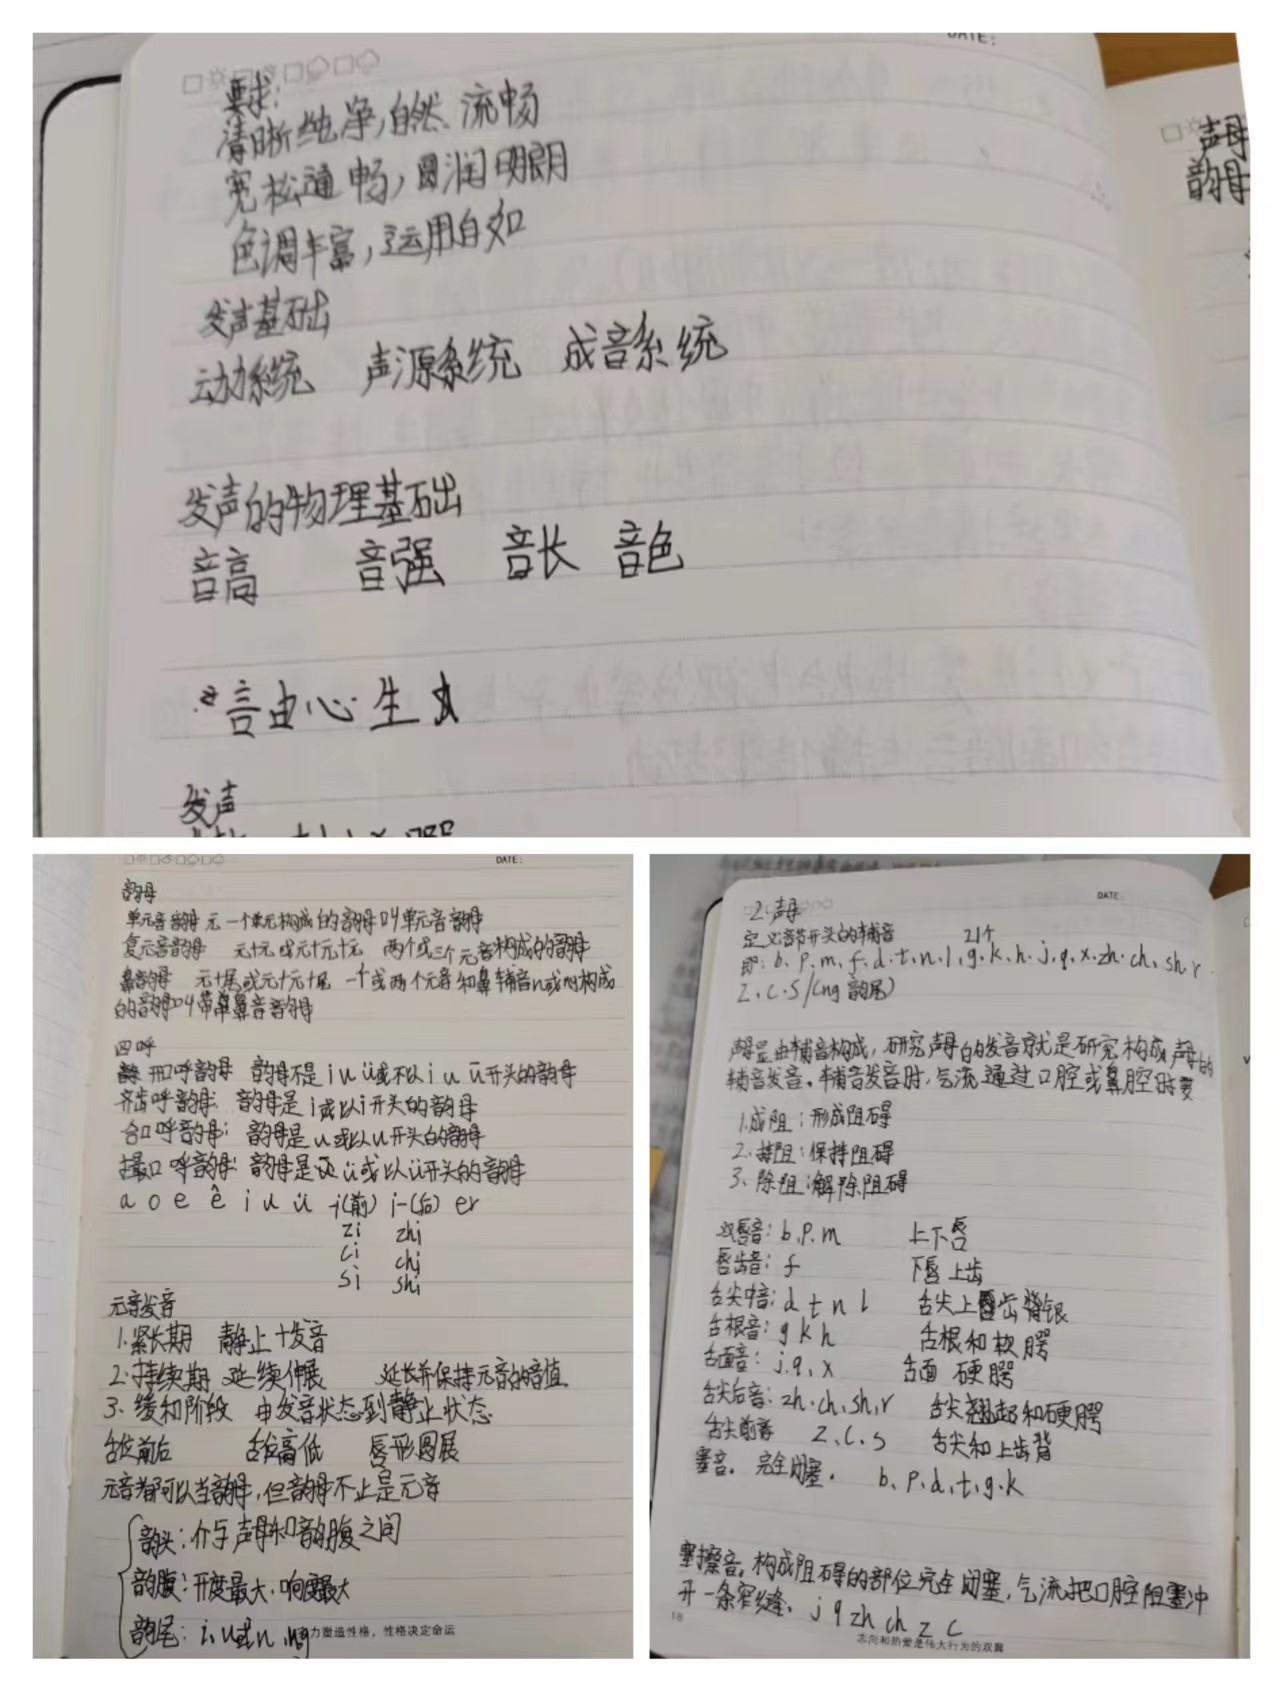 DATE:
要求:
清晰纯净,自然、流畅
宽松通畅,圆润明朗
色调丰富,运用自如
发声基础
动力系统 声源系统 成音系统
发声的物理基础
音高 音强 音长 音色
言由心生
发声
声母
韵母
DATE:
韵母
单元音韵母 元 一个单元构成的韵母叫单元音韵母
复元音韵母 元+元或元+元+元 两个或三个元音构成的韵母
鼻韵母 元+尾或元+元+尾 一个或两个元音和鼻辅音n或ng构成
的韵母叫带鼻音韵母
四呼
开口呼韵母 韵母不是i u ü或不以i u ü开头的韵母
齐齿呼韵母: 韵母是i或以i开头的韵母
合口呼韵母: 韵母是u或以u开头的韵母
撮口呼韵母: 韵母是ü或以ü开头的韵母
a o e ê i u ü -i(前) i-(后) er
zi zhi
ci chi
si shi
元音发音
1.紧张期 静止+发音
2.持续期 延续伸展 延长并保持元音的音值.
3、缓和阶段 由发音状态到静止状态
舌位前后 舌位高低 唇形圆展
元音都可以当韵母,但韵母不止是元音
韵头:介与声母和韵腹之间
韵腹:开度最大,响度最大
韵尾: i、u或n、ng
力塑造性格，性格决定命运
DATE:
2.声母
定义音节开头的辅音 21个
即: b、p、m、f、d、t、n、l、g、k、h、j、q、x、zh、ch、sh、r
z、c、s/(ng 韵尾)
声母是由辅音构成,研究声母的发音就是研究构成声母的
辅音发音。辅音发音时,气流通过口腔或鼻腔时要
1.成阻:形成阻碍
2.持阻:保持阻碍
3、除阻:解除阻碍
双唇音: b、p、m 上下唇
唇齿音: f 下唇上齿
舌尖中音: d t n l 舌尖上齿背银
舌根音: g k h 舌根和软腭
舌面音: j、q、x 舌面 硬腭
舌尖后音: zh、ch、sh、r 舌尖翘起和硬腭
舌尖前音 z、c、s 舌尖和上齿背
塞音。完全闭塞。 b、p、d、t、g、k
塞擦音。构成阻碍的部位完全闭塞,气流把口腔阻塞冲
开一条窄缝。 j q zh ch z c
18
志向和热爱是伟大行为的双翼